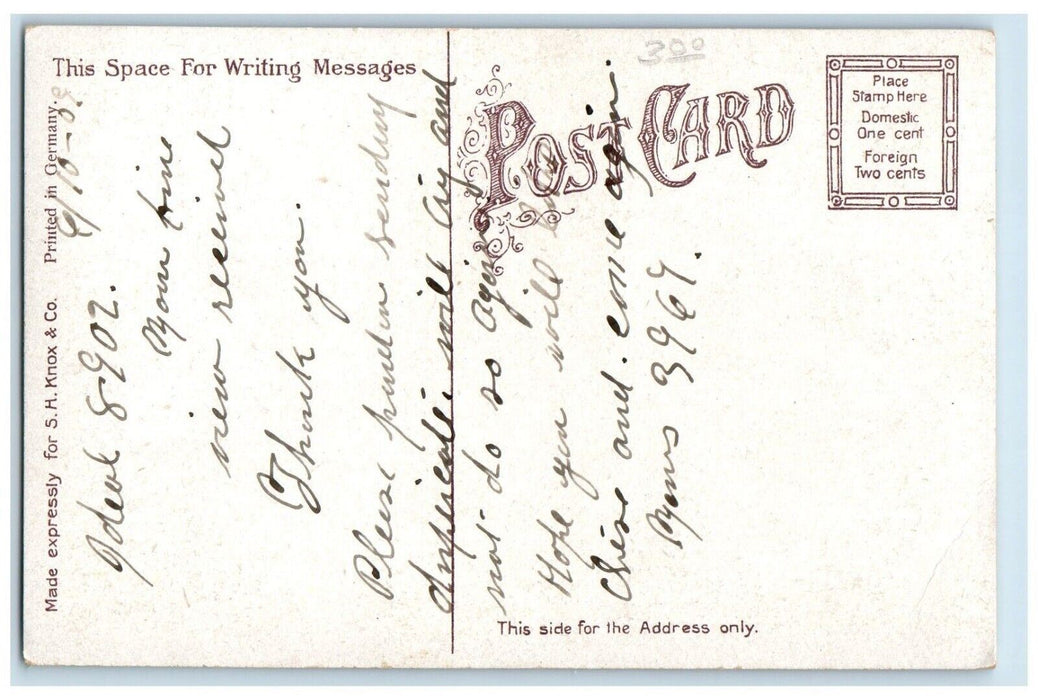 This Space For Writing Messages
POST CARD
300
Place
Stamp Here
Domestic
One cent
Foreign
Two cents
Made expressly for S.H. Knox & Co. Printed in Germany.
9/10-09
Ideal 8902.
Your fine
view received
Thank you.
Please pardon sending
duplicate will try and
not do so again
Hope you will
and come again.
Yours 3969.
This side for the Address only.